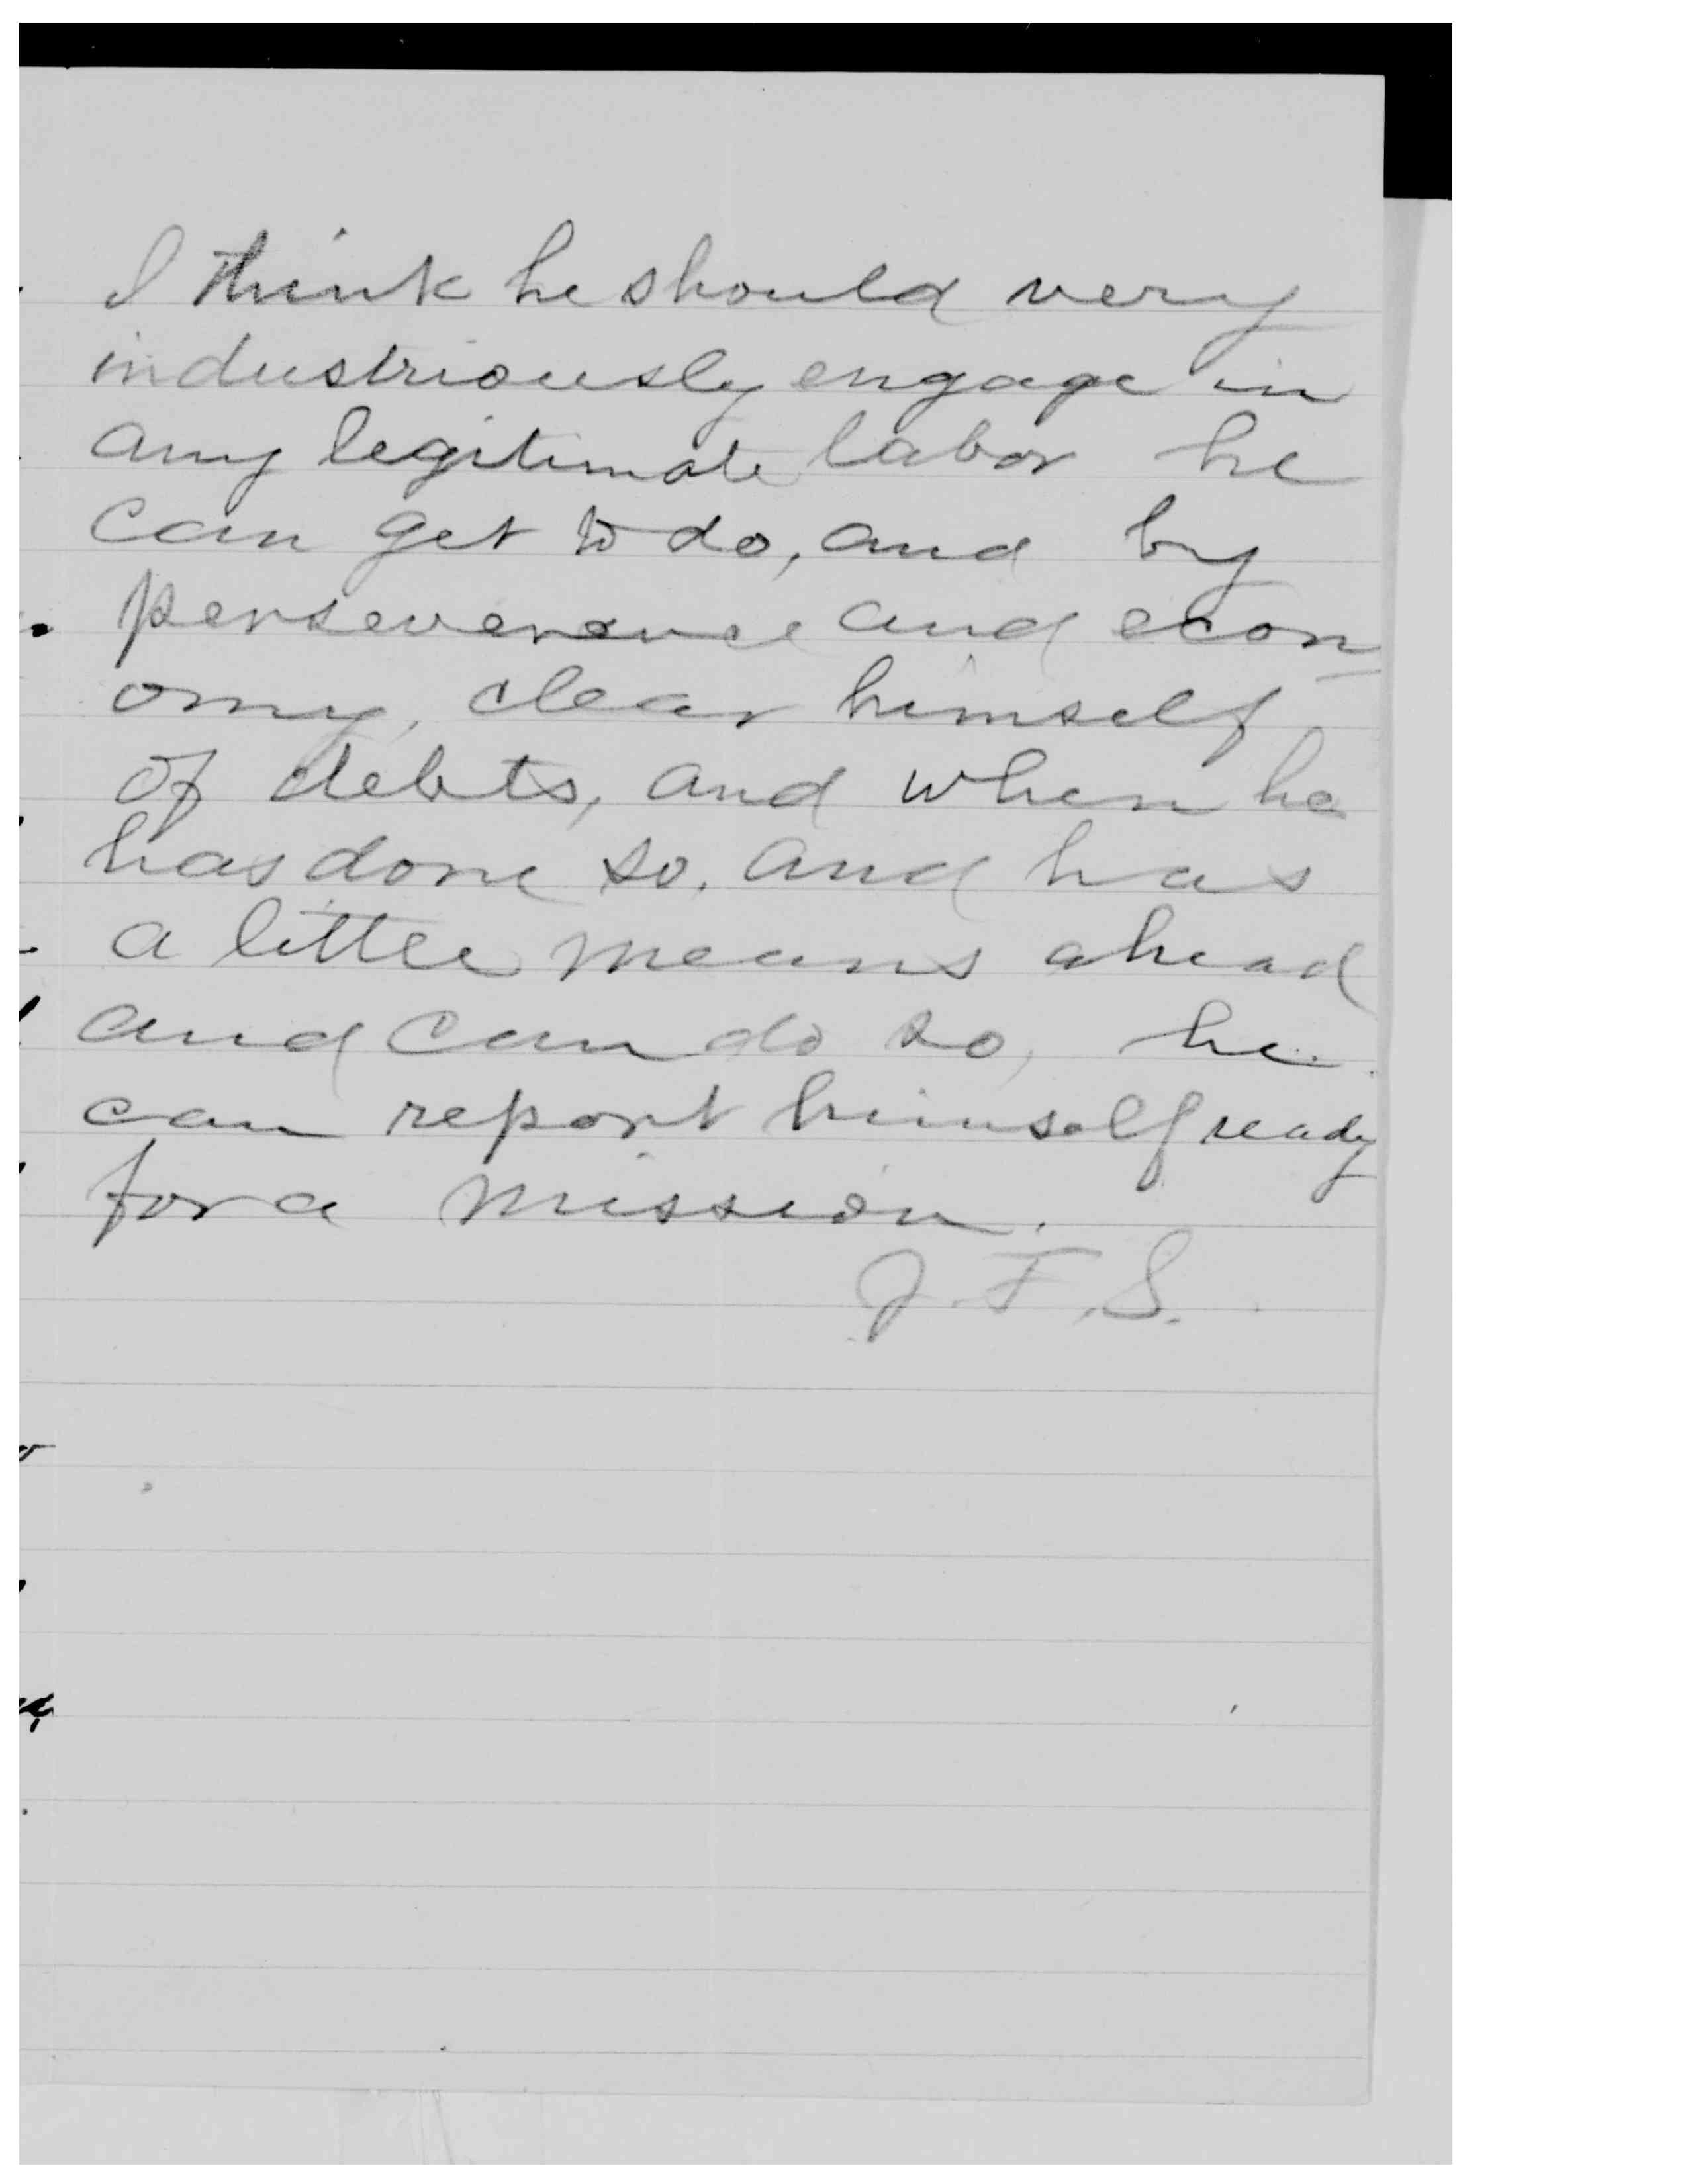 I think he should very
industriously engage in
any legitimate labor he
can get to do, and by
perseverance and econ
omy, clear himself
of debts, and when he
has done so, and has
a little means ahead
and can do so, he
can report himself ready
for a mission.
J. F. S.